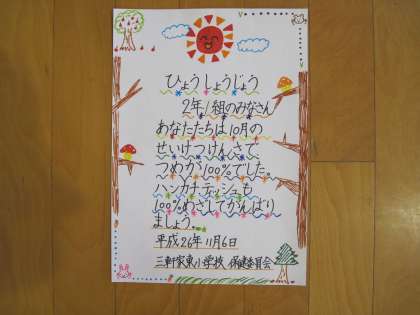 ひょうしょうじょう
2年1組のみなさん
あなたたちは10月の
せいけつけんさで
つめが100%でした。
ハンカチティッシュも
100%めざしてがんばり
ましょう。
平成26年11月6日
三軒家東小学校 保健委員会